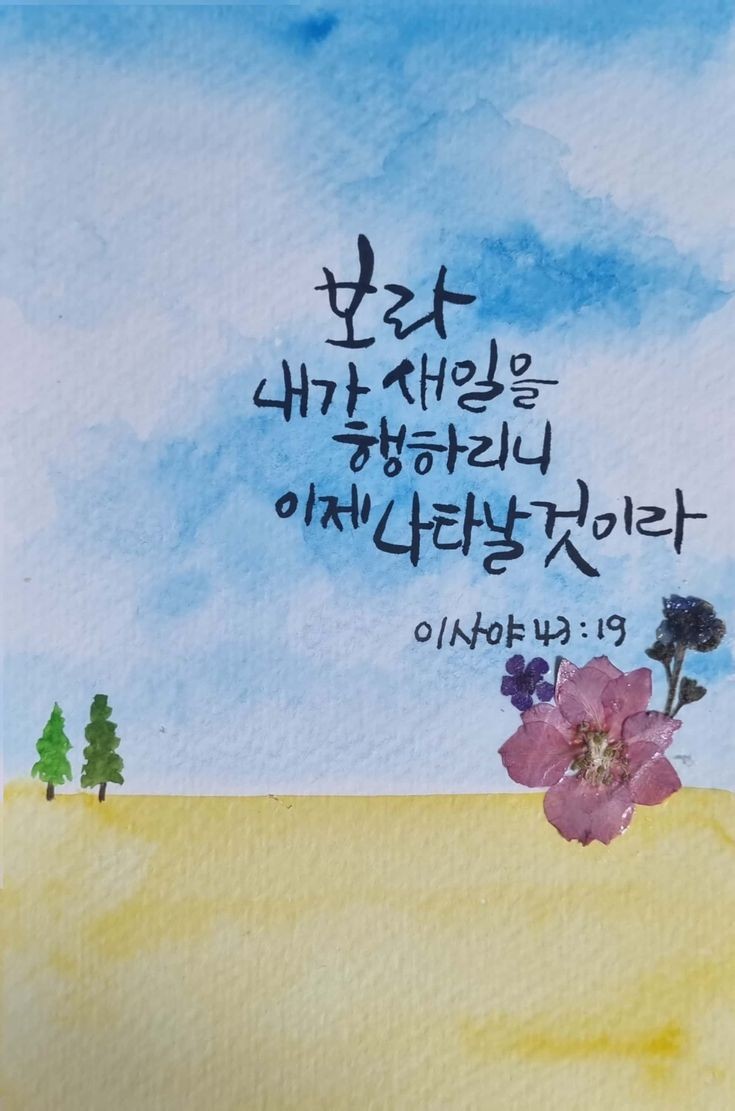 보라
내가 새일을
행하리니
이제 나타날 것이라
이사야 43:19